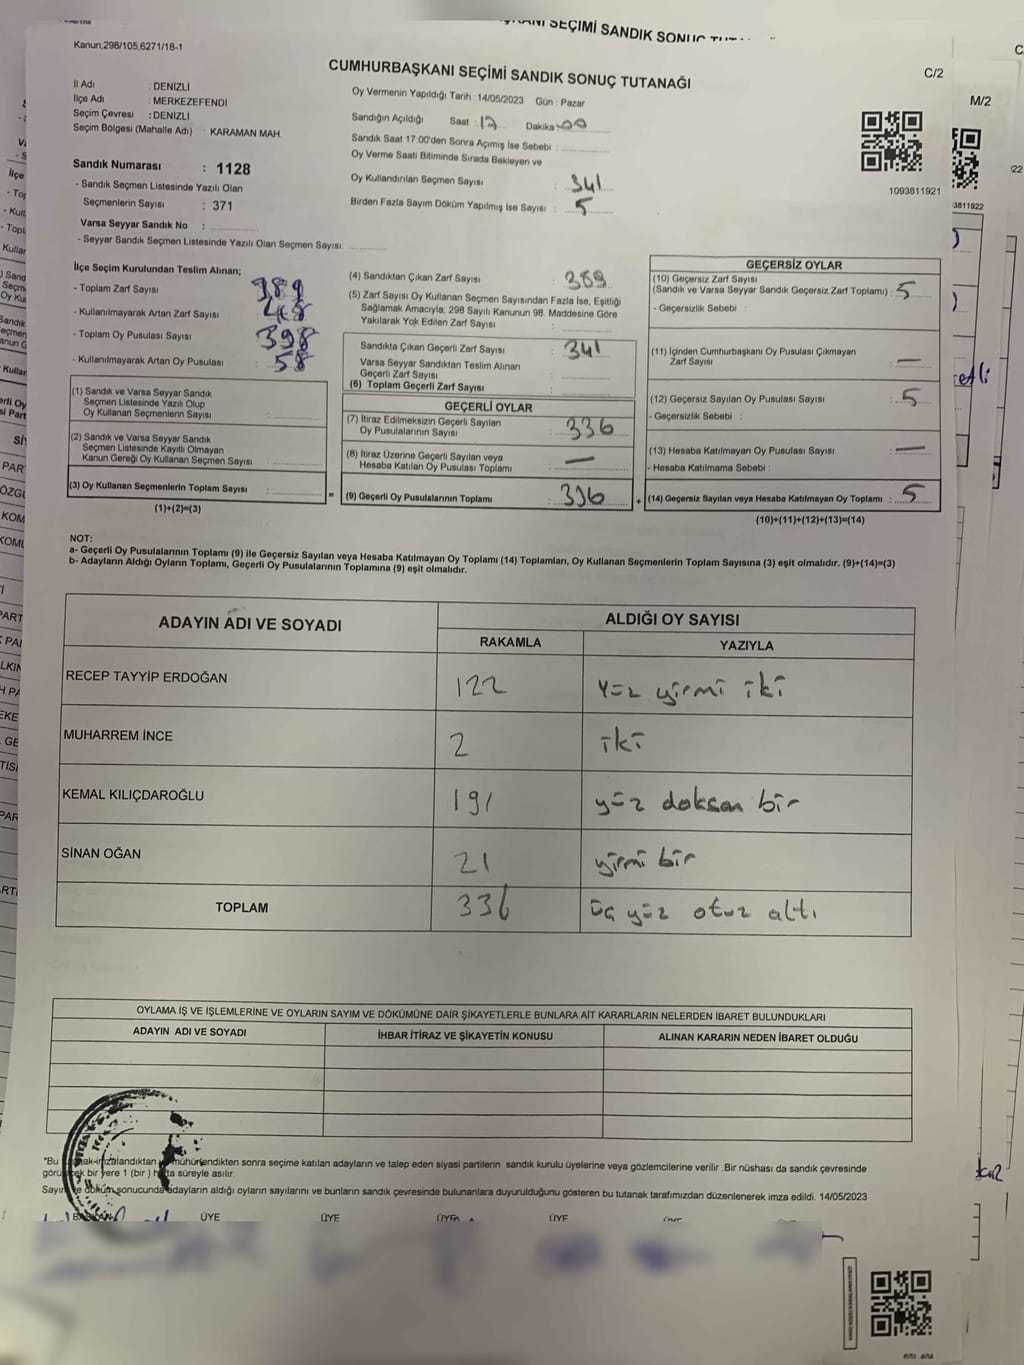 KANI SEÇİMİ SANDIK SONUÇ
Kanun;298/105,6271/18-1
C/2
M/2
CUMHURBAŞKANI SEÇİMİ SANDIK SONUÇ TUTANAĞI
İl Adı : DENİZLİ
İlçe Adı : MERKEZEFENDİ
Seçim Çevresi : DENİZLİ
Seçim Bölgesi (Mahalle Adı) : KARAMAN MAH
Sandık Numarası : 1128
- Sandık Seçmen Listesinde Yazılı Olan
Seçmenlerin Sayısı : 371
Varsa Seyyar Sandık No :
- Seyyar Sandık Seçmen Listesinde Yazılı Olan Seçmen Sayısı:
Oy Vermenin Yapıldığı Tarih : 14/05/2023 Gün : Pazar
Sandığın Açıldığı Saat : 17 Dakika 00
Sandık Saat 17:00'den Sonra Açımış İse Sebebi :
Oy Verme Saati Bitiminde Sırada Bekleyen ve
Oy Kullandırılan Seçmen Sayısı : 341
Birden Fazla Sayım Döküm Yapılmış İse Sayısı : 5
1093811921
3811922
İlçe Seçim Kurulundan Teslim Alınan;
- Toplam Zarf Sayısı : 389
- Kullanılmayarak Artan Zarf Sayısı : 48
- Toplam Oy Pusulası Sayısı : 398
- Kullanılmayarak Artan Oy Pusulası : 58
(1) Sandık ve Varsa Seyyar Sandık
Seçmen Listesinde Yazılı Olup
Oy Kullanan Seçmenlerin Sayısı :
(2) Sandık ve Varsa Seyyar Sandık
Seçmen Listesinde Kayıtlı Olmayan
Kanun Gereği Oy Kullanan Seçmen Sayısı :
(3) Oy Kullanan Seçmenlerin Toplam Sayısı :
(1)+(2)=(3)
(4) Sandıktan Çıkan Zarf Sayısı : 389
(5) Zarf Sayısı Oy Kullanan Seçmen Sayısından Fazla İse, Eşitliği
Sağlamak Amacıyla; 298 Sayılı Kanunun 98. Maddesine Göre
Yakılarak Yok Edilen Zarf Sayısı :
Sandıkta Çıkan Geçerli Zarf Sayısı : 341
Varsa Seyyar Sandıktan Teslim Alınan
Geçerli Zarf Sayısı :
(6) Toplam Geçerli Zarf Sayısı :
GEÇERLİ OYLAR
(7) İtiraz Edilmeksizin Geçerli Sayılan
Oy Pusulalarının Sayısı : 336
(8) İtiraz Üzerine Geçerli Sayılan veya
Hesaba Katılan Oy Pusulası Toplamı : —
= (9) Geçerli Oy Pusulalarının Toplamı : 336
GEÇERSİZ OYLAR
(10) Geçersiz Zarf Sayısı
(Sandık ve Varsa Seyyar Sandık Geçersiz Zarf Toplamı) : 5
- Geçersizlik Sebebi :
(11) İçinden Cumhurbaşkanı Oy Pusulası Çıkmayan
Zarf Sayısı : —
(12) Geçersiz Sayılan Oy Pusulası Sayısı : 5
- Geçersizlik Sebebi :
(13) Hesaba Katılmayan Oy Pusulası Sayısı : —
- Hesaba Katılmama Sebebi :
+ (14) Geçersiz Sayılan veya Hesaba Katılmayan Oy Toplamı : 5
(10)+(11)+(12)+(13)=(14)
NOT:
a- Geçerli Oy Pusulalarının Toplamı (9) ile Geçersiz Sayılan veya Hesaba Katılmayan Oy Toplamı (14) Toplamları, Oy Kullanan Seçmenlerin Toplam Sayısına (3) eşit olmalıdır. (9)+(14)=(3)
b- Adayların Aldığı Oyların Toplamı, Geçerli Oy Pusulalarının Toplamına (9) eşit olmalıdır.
ADAYIN ADI VE SOYADI
ALDIĞI OY SAYISI
RAKAMLA YAZIYLA
RECEP TAYYİP ERDOĞAN 122 yüz yirmi iki
MUHARREM İNCE 2 iki
KEMAL KILIÇDAROĞLU 191 yüz doksan bir
SİNAN OĞAN 21 yirmi bir
TOPLAM 336 üç yüz otuz altı
OYLAMA İŞ VE İŞLEMLERİNE VE OYLARIN SAYIM VE DÖKÜMÜNE DAİR ŞİKAYETLERLE BUNLARA AİT KARARLARIN NELERDEN İBARET BULUNDUKLARI
ADAYIN ADI VE SOYADI İHBAR İTİRAZ VE ŞİKAYETİN KONUSU ALINAN KARARIN NEDEN İBARET OLDUĞU
mühürlendikten sonra seçime katılan adayların ve talep eden siyasi partilerin sandık kurulu üyelerine veya gözlemcilerine verilir .Bir nüshası da sandık çevresinde
yere 1 (bir ) hafta süreyle asılır.
döküm sonucunda adayların aldığı oyların sayılarını ve bunların sandık çevresinde bulunanlara duyurulduğunu gösteren bu tutanak tarafımızdan düzenlenerek imza edildi. 14/05/2023
BAŞKAN ÜYE ÜYE ÜYE ÜYE ÜYE